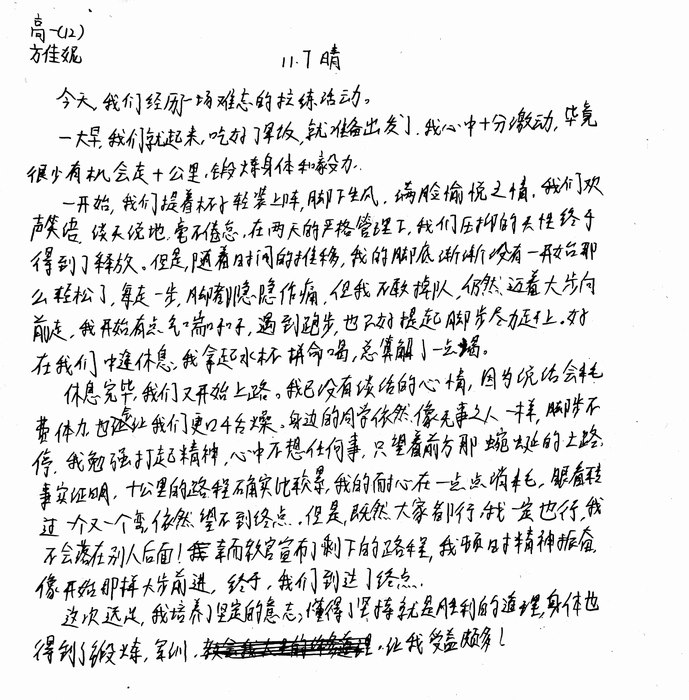 高一(12)
方佳妮
11.7 晴
今天,我们经历一场难忘的拉练活动。
一大早,我们就起来,吃好了早饭,就准备出发了,我心中十分激动,毕竟
很少有机会走十公里,锻炼身体和毅力.
一开始,我们提着杯子轻装上阵,脚下生风,满脸愉悦之情,我们欢
声笑语,谈天说地,毫不倦怠,在两天的严格管理下,我们压抑的天性终于
得到了释放。但是,随着时间的推移,我的脚底渐渐没有一开始那
么轻松了,每走一步,脚都隐隐作痛,但我不敢掉队,仍然迈着大步向
前走,我开始有点气喘和汗,遇到跑步,也只好提起脚步尽力赶上。好
在我们中途休息,我拿起水杯拼命喝,总算解了一点渴。
休息完毕,我们又开始上路。我已没有谈话的心情,因为说话会耗
费体力,也会让我们更口干舌燥。身边的同学依然像无事之人一样,脚步不
停,我勉强打起精神,心中不想任何事,只望着前方那蜿蜒的上路,
事实证明,十公里的路程确实比较累,我的耐心在一点点消耗,眼看转
过一个又一个弯,依然望不到终点.但是,既然大家都行,我一定也行,我
不会落在别人后面!幸而教官宣布了剩下的路程,我顿时精神振奋,
像开始那样大步前进,终于,我们到达了终点.
这次远足,我培养了坚定的意志,懂得了坚持就是胜利的道理,身体也
得到了锻炼,军训,让我受益颇多!